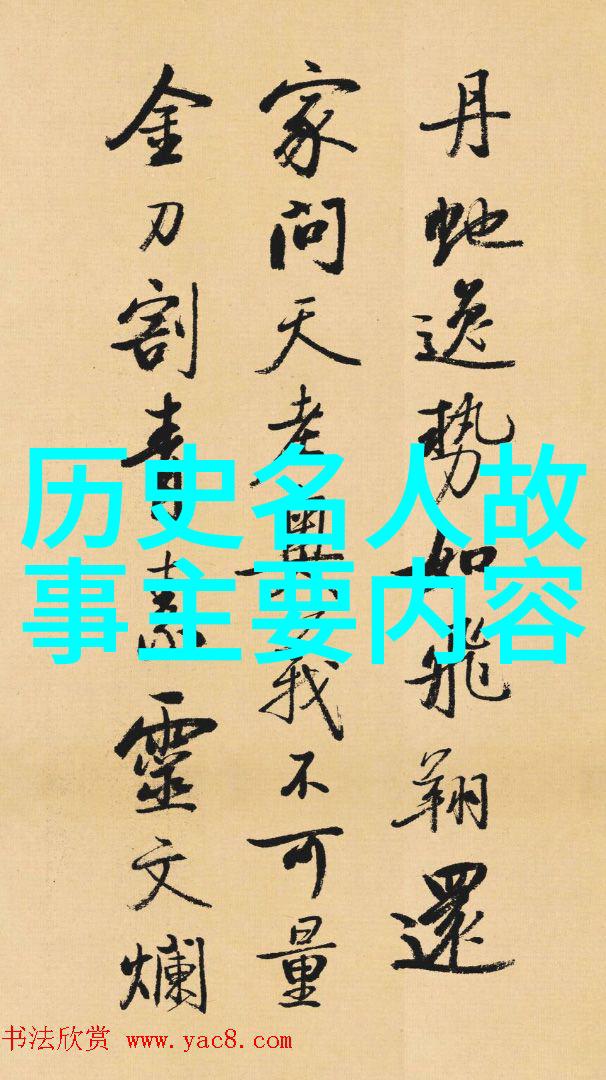 丹虵逸勢如飛翔還
家問天老奧義不可量
金刀割青素靈文爛
历史名人故
事主要内容
书法欣赏 www.yac8.com